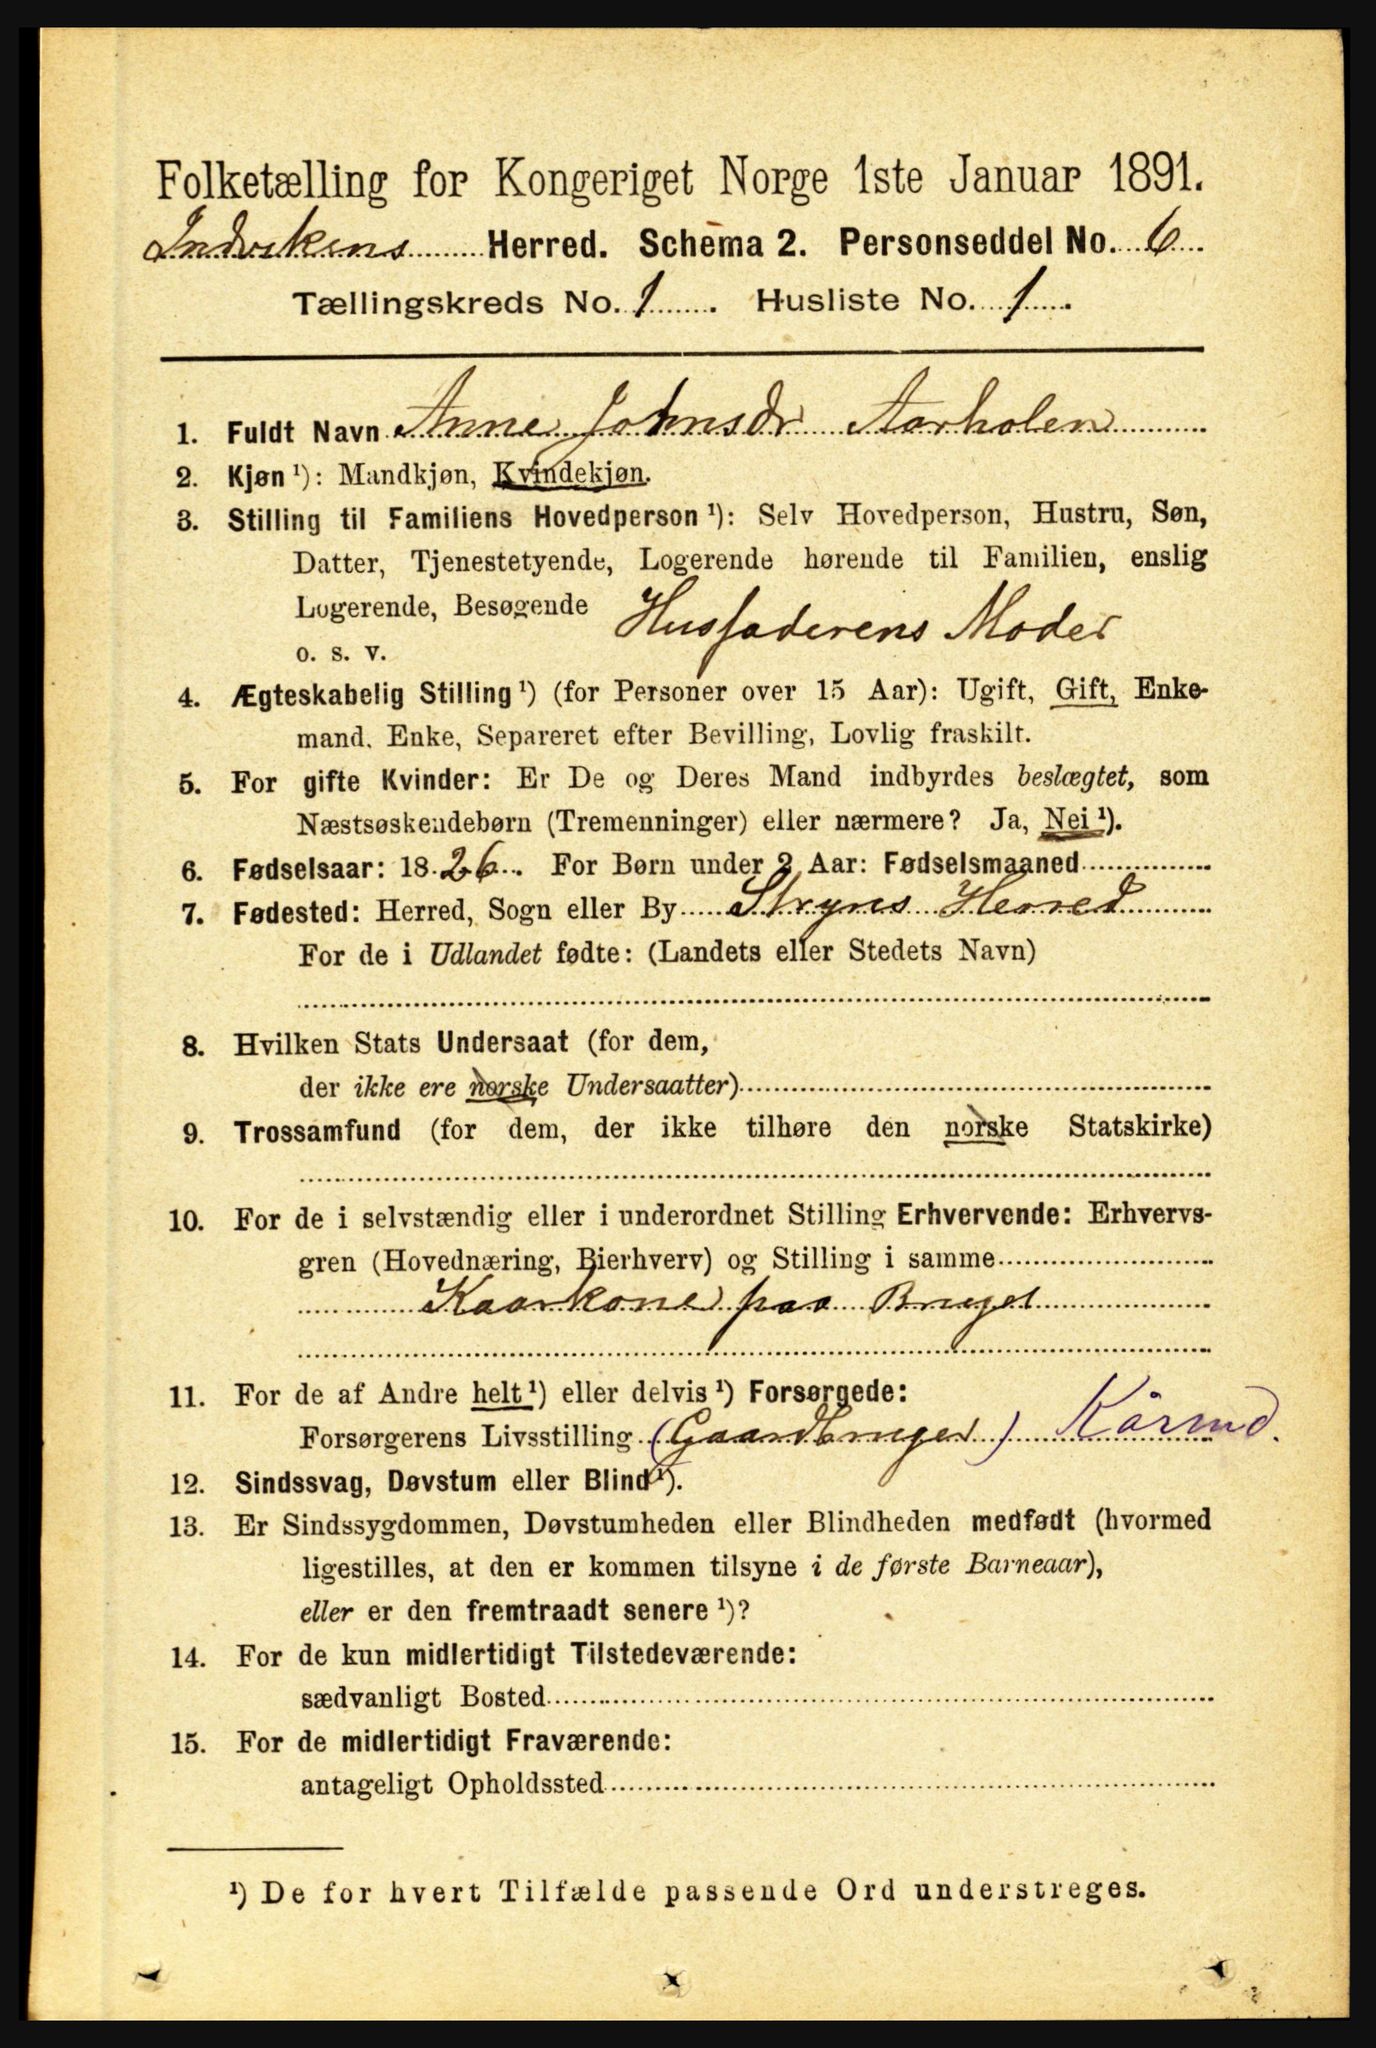 Folketælling for Kongeriget Norge 1ste Januar 1891.
Indvikens Herred. Schema 2. Personseddel No. 6
Tællingskreds No. 1. Husliste No. 1.
1. Fuldt Navn Anne Johnsdr Aarholen
2. Kjøn ¹): Mandkjøn, Kvindekjøn.
3. Stilling til Familiens Hovedperson ¹): Selv Hovedperson, Hustru, Søn,
Datter, Tjenestetyende, Logerende hørende til Familien, enslig
Logerende, Besøgende Husfaderens Moder
o. s. v.
4. Ægteskabelig Stilling ¹) (for Personer over 15 Aar): Ugift, Gift, Enke-
mand. Enke, Separeret efter Bevilling, Lovlig fraskilt.
5. For gifte Kvinder: Er De og Deres Mand indbyrdes beslægtet, som
Næstsøskendebørn (Tremenninger) eller nærmere? Ja, Nei ¹).
6. Fødselsaar: 1826. For Børn under 2 Aar: Fødselsmaaned
7. Fødested: Herred, Sogn eller By Stryns Herred
For de i Udlandet fødte: (Landets eller Stedets Navn)
8. Hvilken Stats Undersaat (for dem,
der ikke ere norske Undersaatter)
9. Trossamfund (for dem, der ikke tilhøre den norske Statskirke)
10. For de i selvstændig eller i underordnet Stilling Erhvervende: Erhvervs-
gren (Hovednæring, Bierhverv) og Stilling i samme
Kaarkone paa Bruget
11. For de af Andre helt ¹) eller delvis ¹) Forsørgede:
Forsørgerens Livsstilling (Gaardbruger) Kårmd.
12. Sindssvag, Døvstum eller Blind ¹).
13. Er Sindssygdommen, Døvstumheden eller Blindheden medfødt (hvormed
ligestilles, at den er kommen tilsyne i de første Barneaar),
eller er den fremtraadt senere ¹)?
14. For de kun midlertidigt Tilstedeværende:
sædvanligt Bosted
15. For de midlertidigt Fraværende:
antageligt Opholdssted
¹) De for hvert Tilfælde passende Ord understreges.